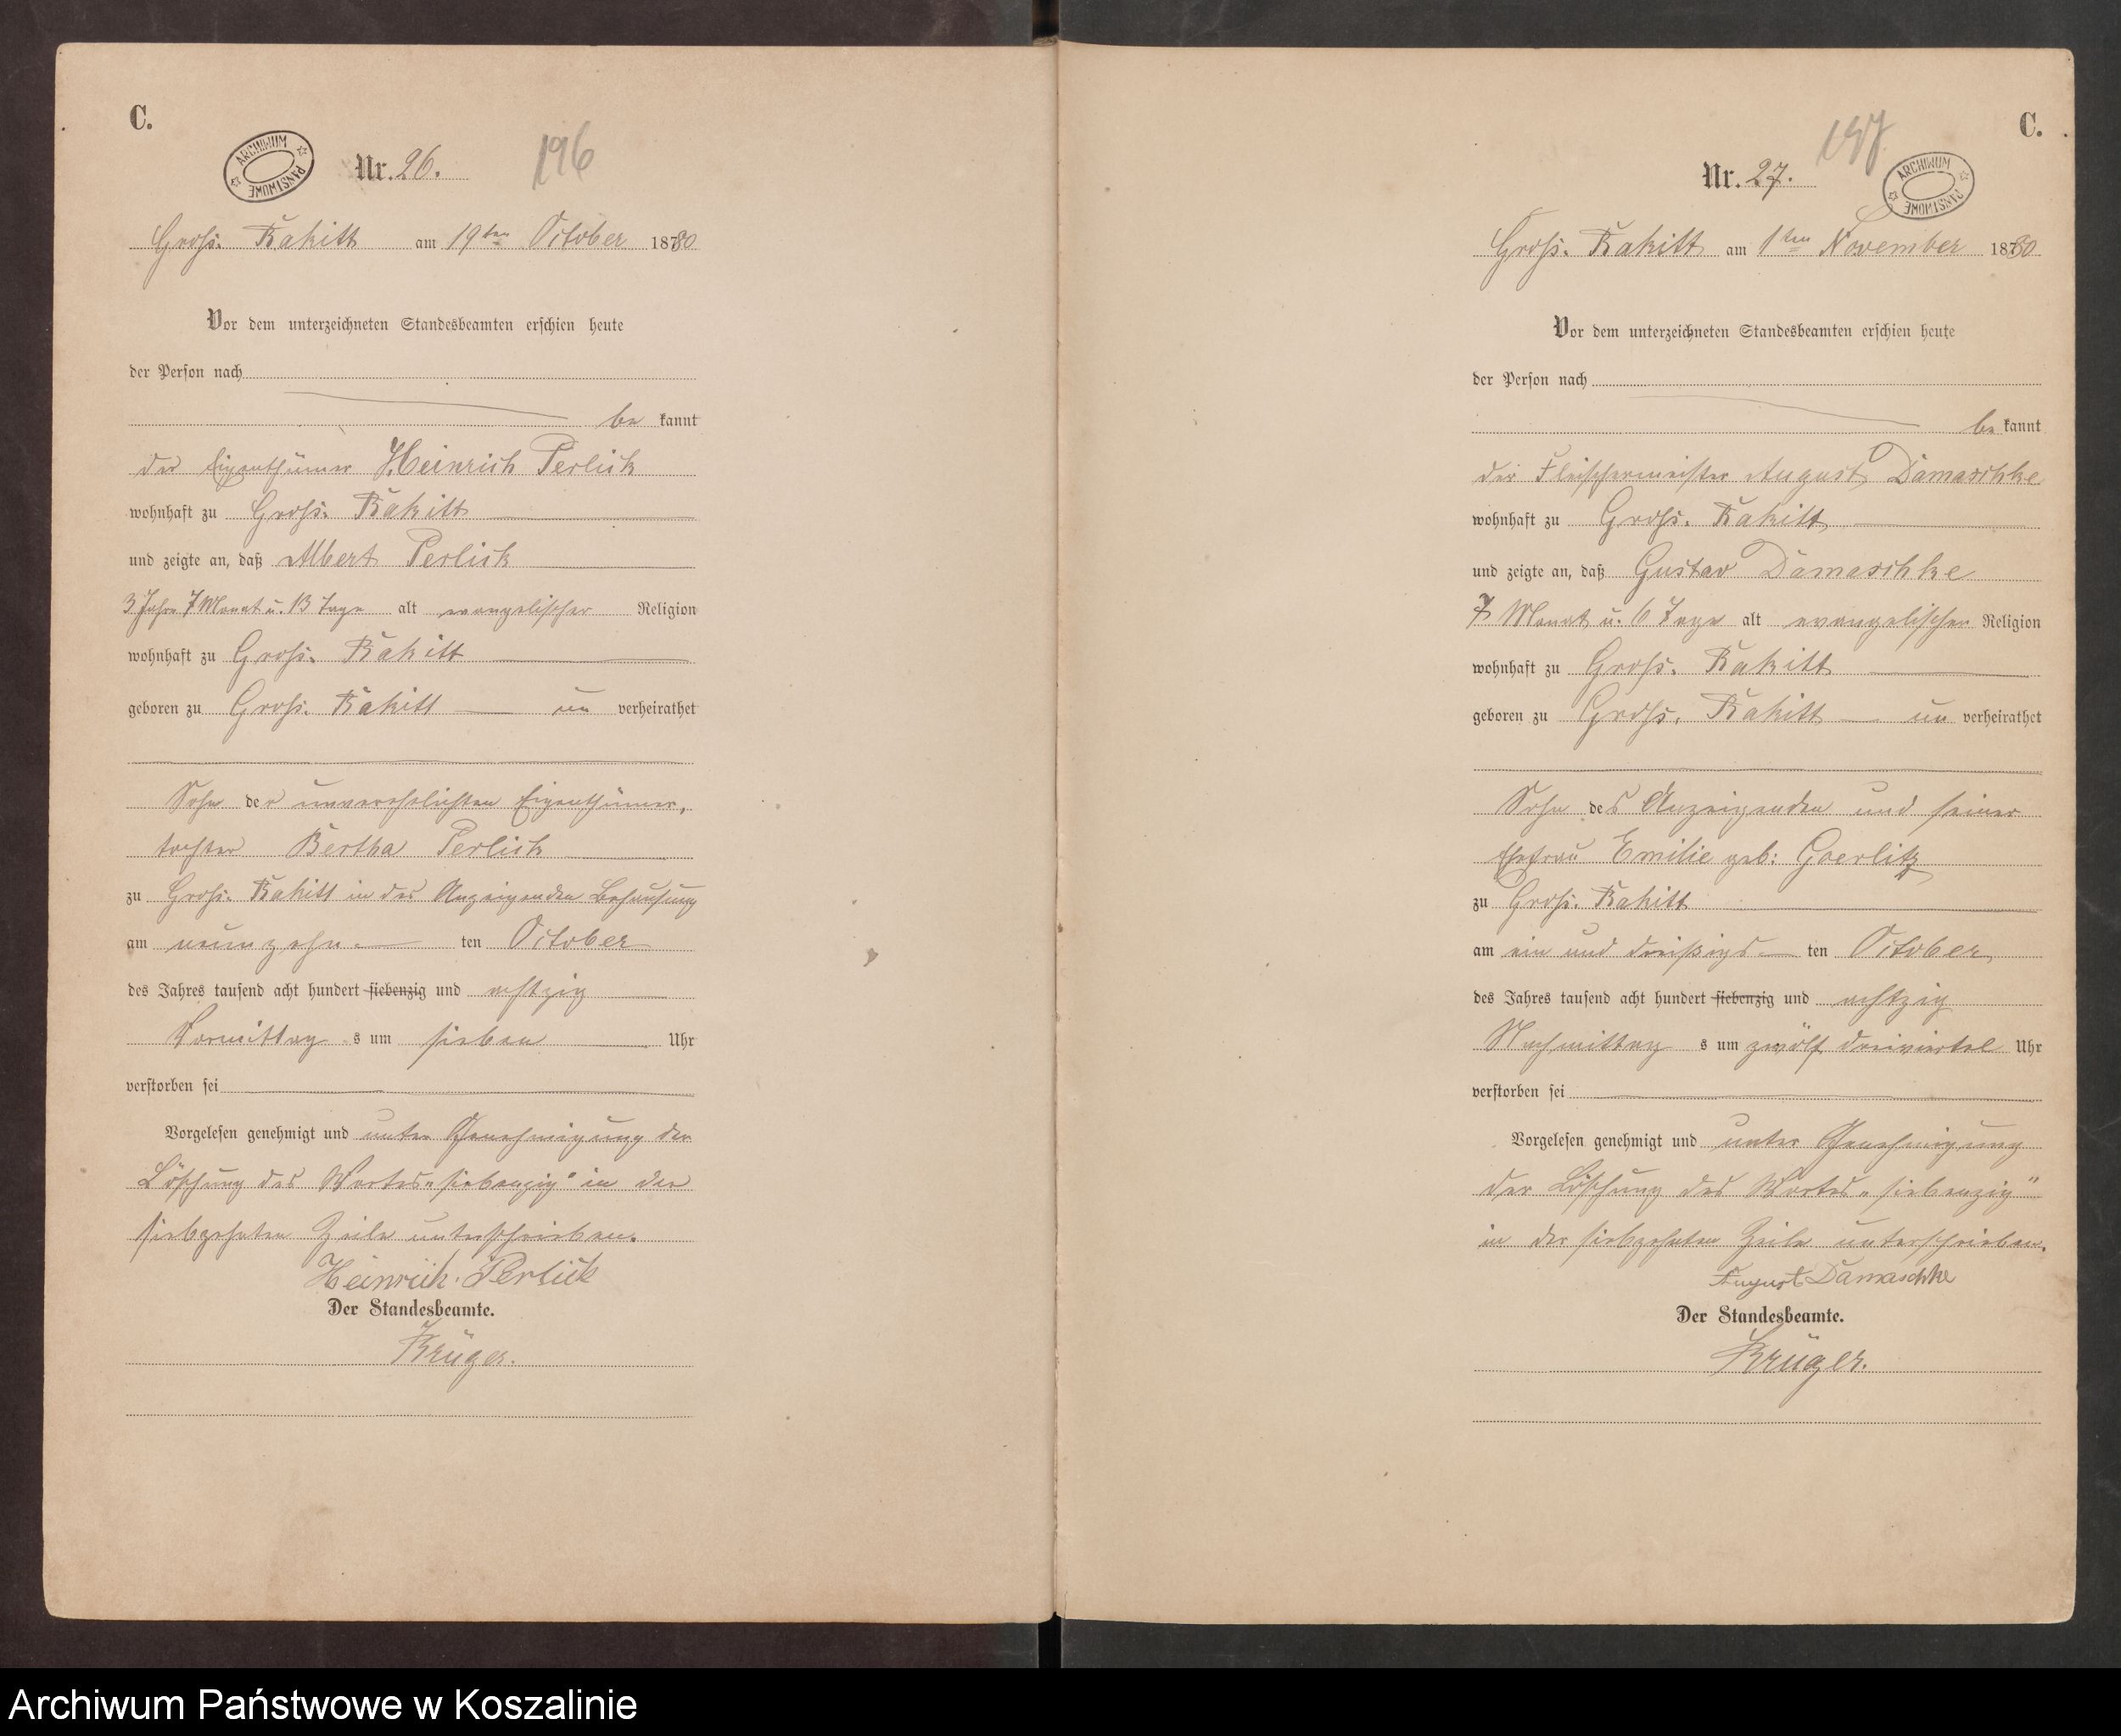 C.
ARCHIWUM PAŃSTWOWE
Nr. 26.
196
Groß-Rakitt am 19ten October 1880
Vor dem unterzeichneten Standesbeamten erschien heute
der Person nach
be kannt
der Eigenthümer Heinrich Perlick
wohnhaft zu Groß-Rakitt
und zeigte an, daß Albert Perlick
3 Jahre 7 Monat u. 13 Tage alt evangelischer Religion
wohnhaft zu Groß-Rakitt
geboren zu Groß-Rakitt un verheirathet
Sohn der unverehelichten Eigenthümer,
tochter Bertha Perlick
zu Groß-Rakitt in des Anzeigenden Behausung
am neunzehn ten October
des Jahres tausend acht hundert siebenzig und achtzig
Vormittag s um sieben Uhr
verstorben sei
Vorgelesen genehmigt und unter Genehmigung der
Löschung des Wortes „siebenzig" in der
siebzehnten Zeile unterschrieben.
Heinrich Perlick
Der Standesbeamte.
Krüger.
C.
197
ARCHIWUM PAŃSTWOWE
Nr. 27.
Groß-Rakitt am 1ten November 1880
Vor dem unterzeichneten Standesbeamten erschien heute
der Person nach
be kannt
der Fleischermeister August Damaschke
wohnhaft zu Groß-Rakitt
und zeigte an, daß Gustav Damaschke
7 Monat u. 6 Tage alt evangelischer Religion
wohnhaft zu Groß-Rakitt
geboren zu Groß-Rakitt un verheirathet
Sohn des Anzeigenden und seiner
Ehefrau Emilie geb: Goerlitz
zu Groß-Rakitt
am ein und dreißigs ten October
des Jahres tausend acht hundert siebenzig und achtzig
Nachmittag s um zwölf dreiviertel Uhr
verstorben sei
Vorgelesen genehmigt und unter Genehmigung
der Löschung des Wortes „siebenzig"
in der siebzehnten Zeile unterschrieben.
August Damaschke
Der Standesbeamte.
Krüger.
Archiwum Państwowe w Koszalinie